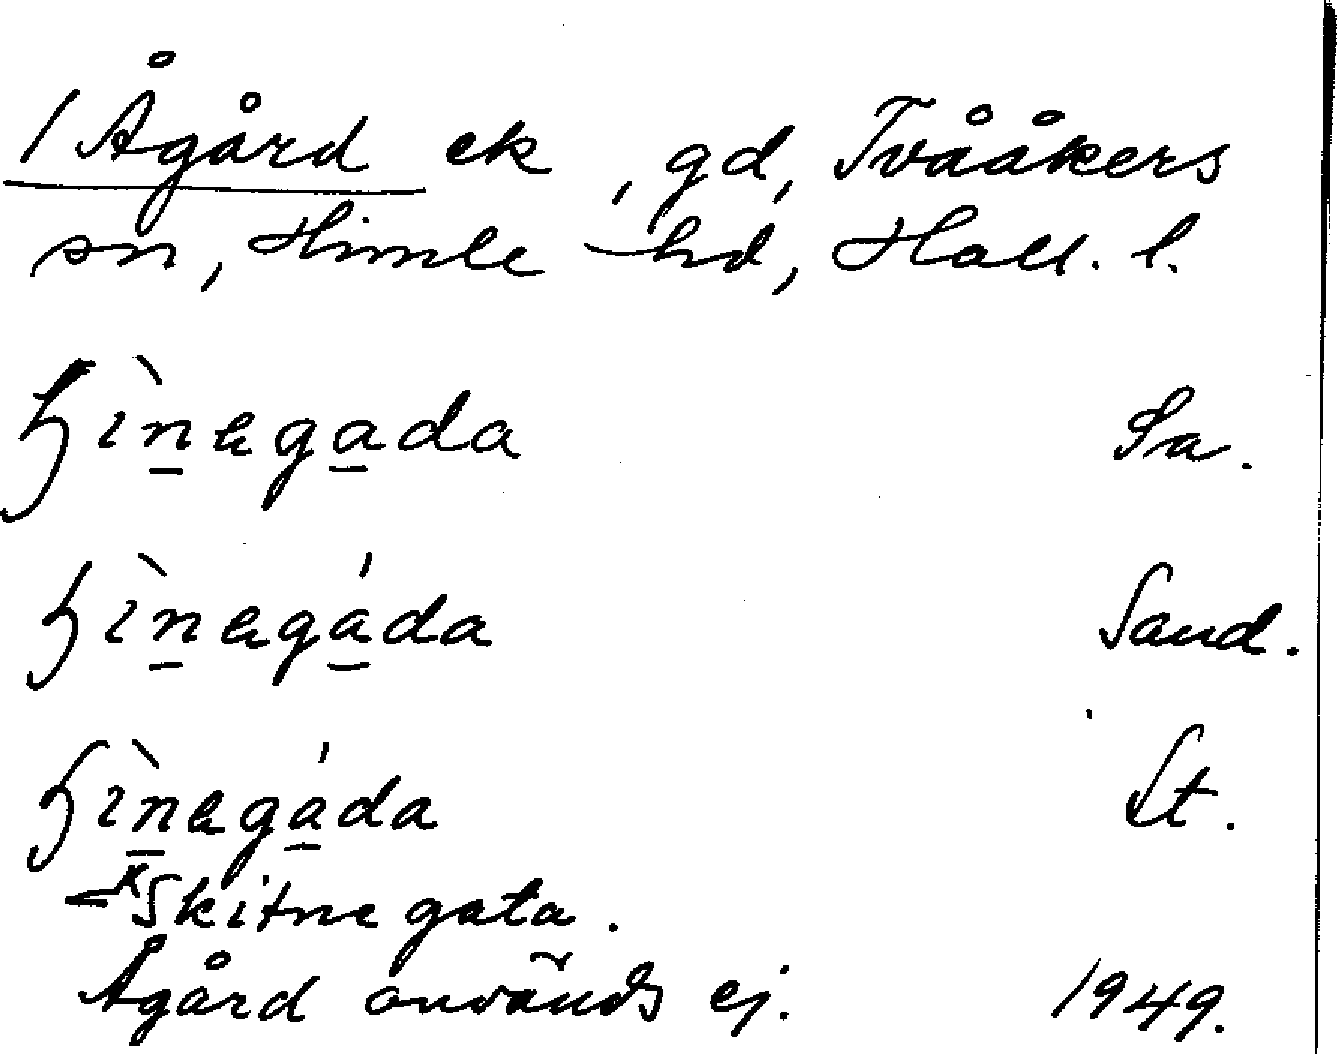 / Ågård ek , gd, Tvååkers
sn, Himle hd, Hall. l.
ɧìnegada Sa.
ɧìnegáda Sand.
ɧìnegáda St.
<*Skitne gata.
Ågård används ej. 1949.